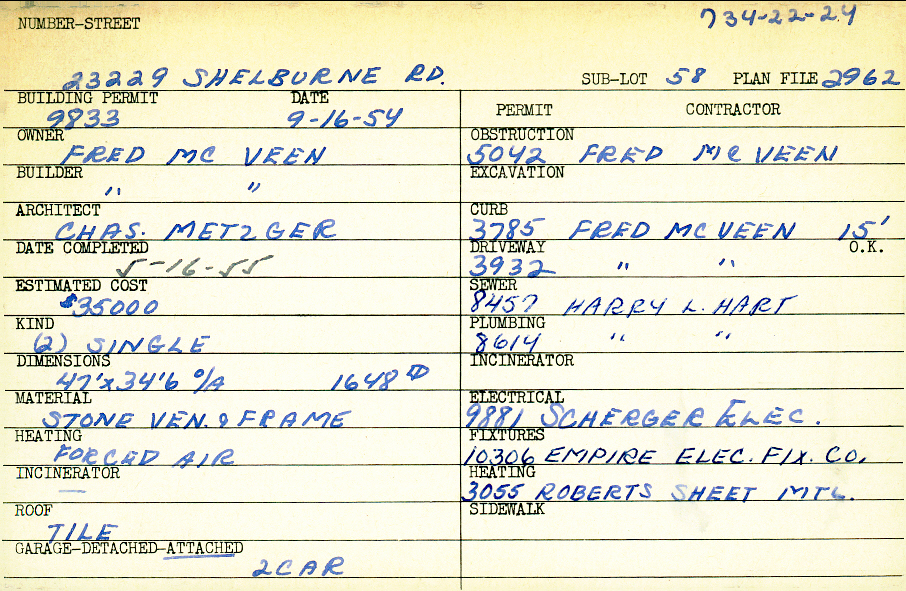 734-22-24
NUMBER-STREET
23229 SHELBURNE RD. SUB-LOT 58 PLAN FILE 2962
BUILDING PERMIT DATE
9833 9-16-54
OWNER
FRED MC VEEN
BUILDER
" "
ARCHITECT
CHAS. METZGER
DATE COMPLETED
5-16-55
ESTIMATED COST
$35000
KIND
(2) SINGLE
DIMENSIONS
47'x34'6 O/A 1648
MATERIAL
STONE VEN. & FRAME
HEATING
FORCED AIR
INCINERATOR
—
ROOF
TILE
GARAGE-DETACHED-ATTACHED
2 CAR
PERMIT CONTRACTOR
OBSTRUCTION
5042 FRED MC VEEN
EXCAVATION
CURB
3785 FRED MC VEEN 15'
DRIVEWAY O.K.
3932 " "
SEWER
8457 HARRY L. HART
PLUMBING
8614 " "
INCINERATOR
ELECTRICAL
9881 SCHERGER ELEC.
FIXTURES
10306 EMPIRE ELEC. FIX. CO.
HEATING
3055 ROBERTS SHEET MTL.
SIDEWALK